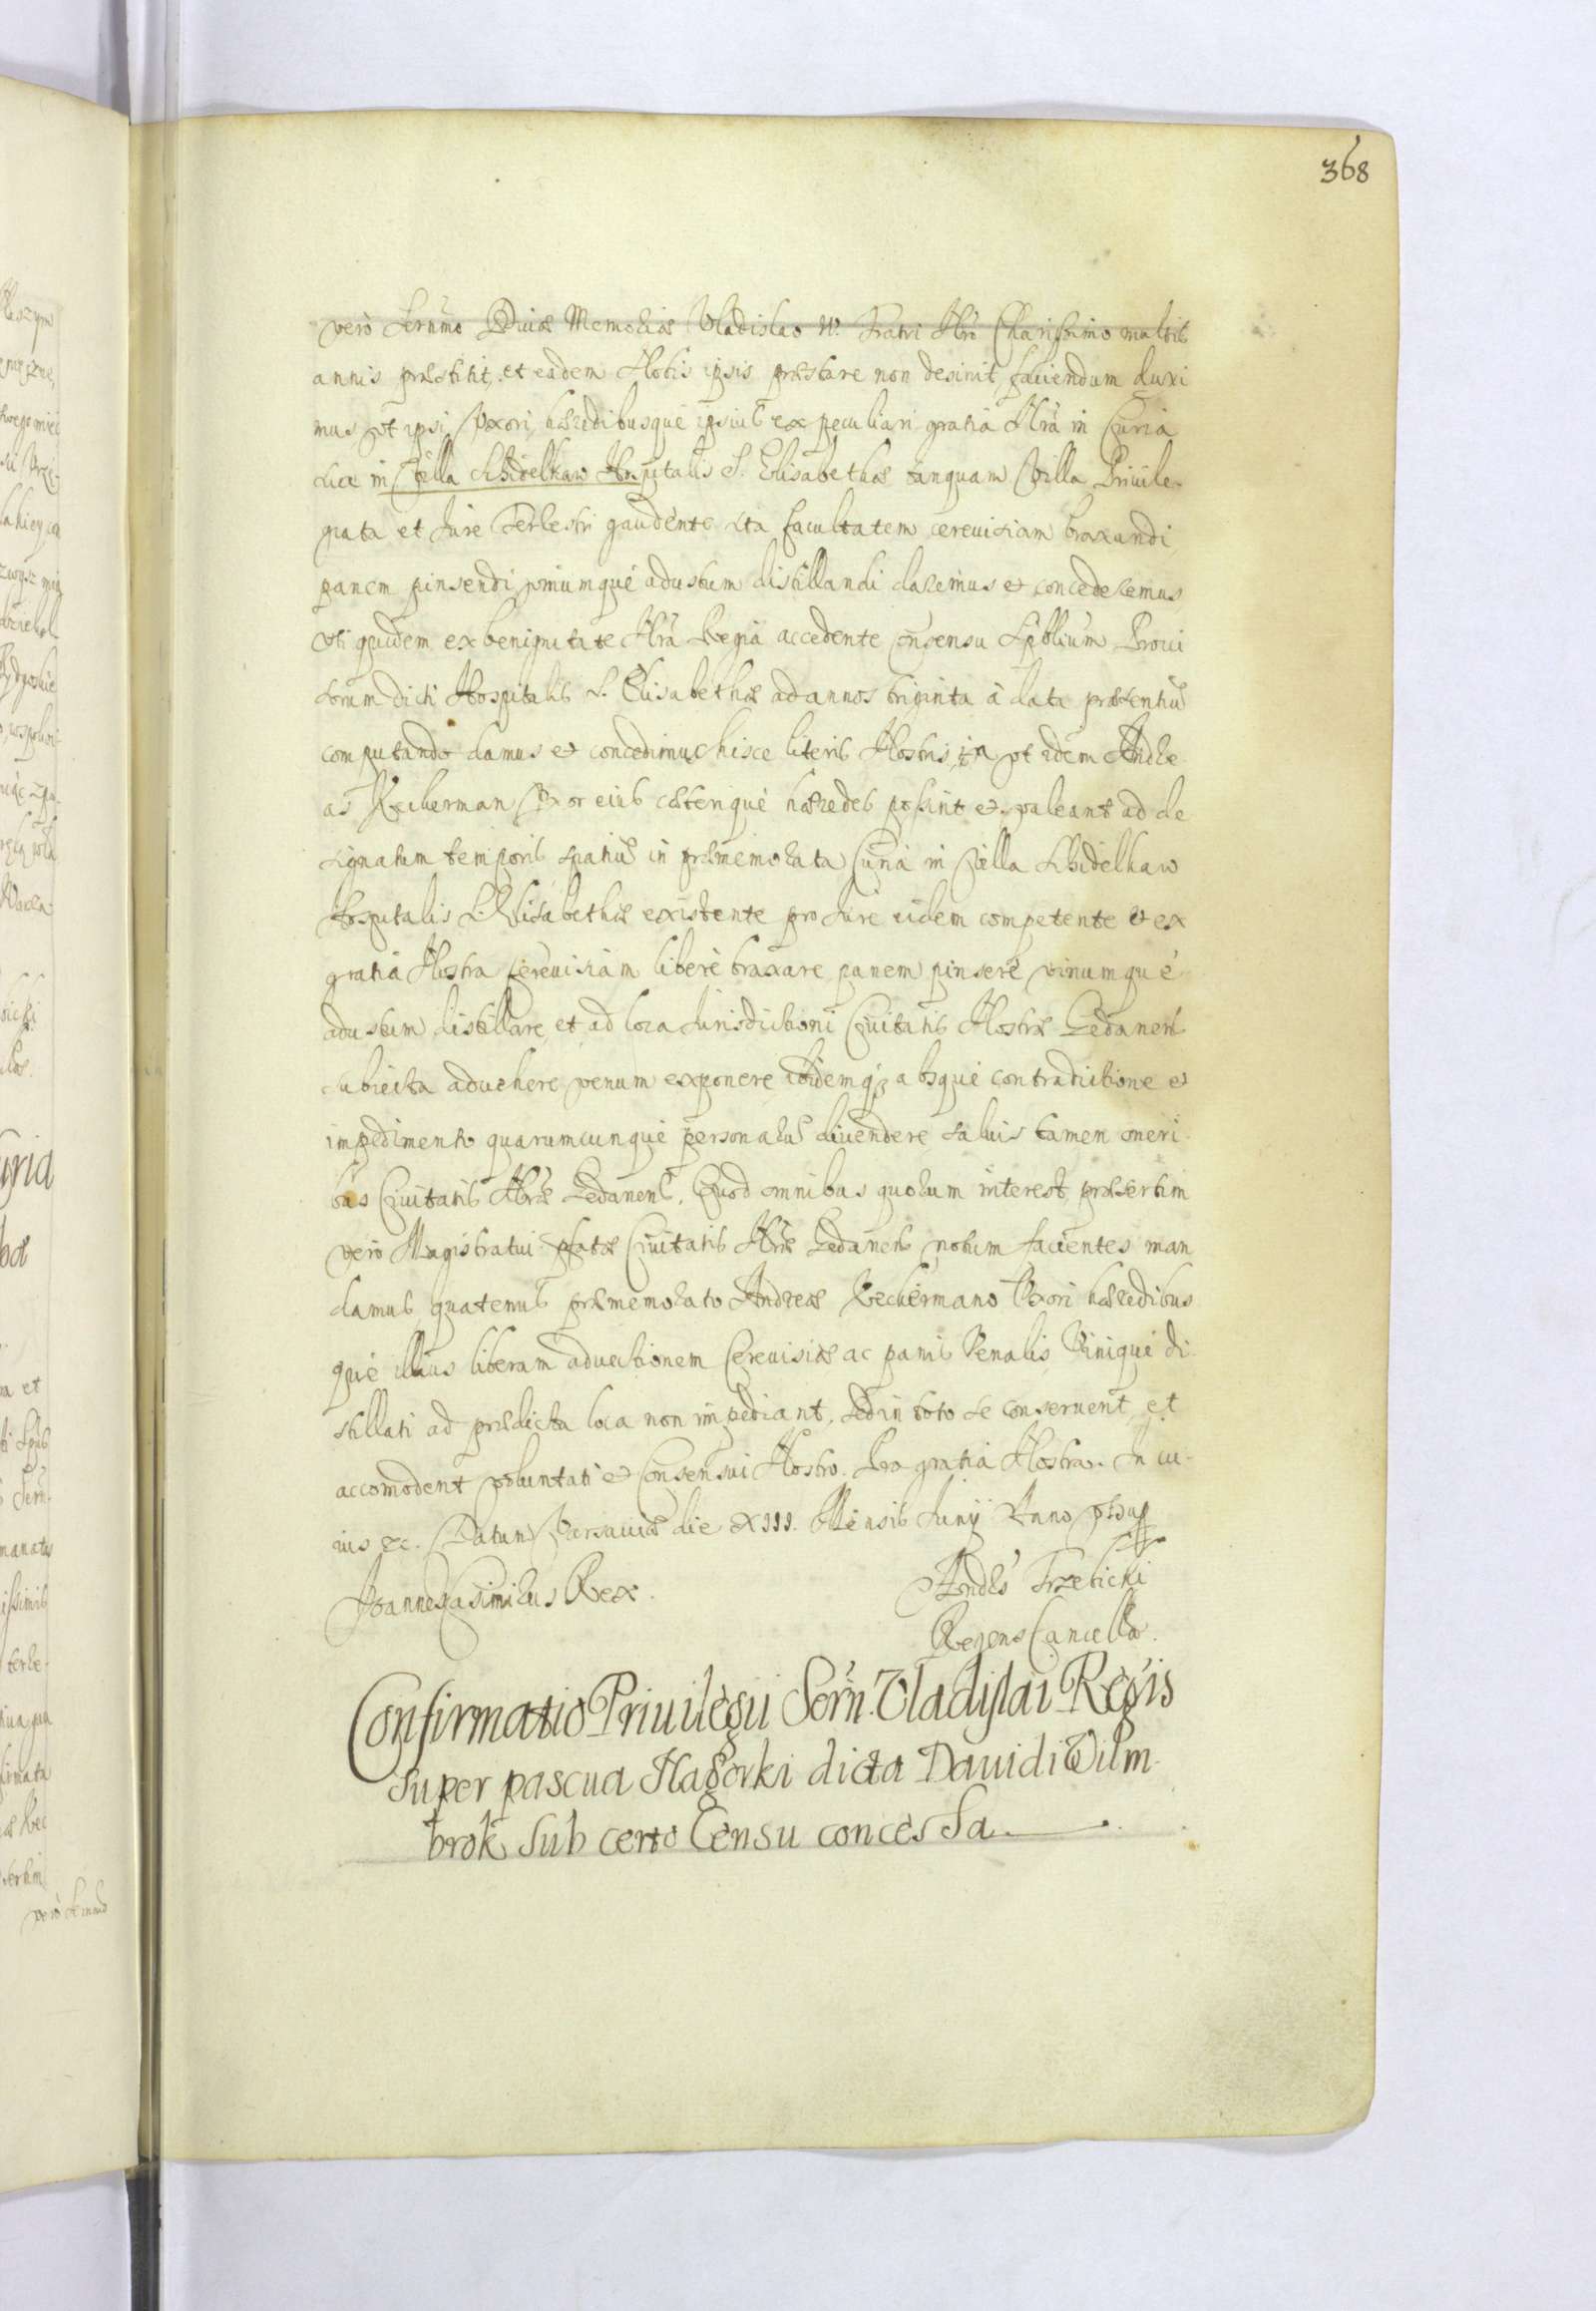 368
vero Sernmo Divæ Memoriæ Vladislao IV. Fratri Nrõ Charissimo multis
annis præstitit, et eadem Nobis ipsis præstare non desinit, faciendum duxi
mus ut ipsi, Uxori, hæredibusque ipsius ex peculiari gratia Nrã in Curia
sua in Villa Schidelkaw Hospitalis S. Elisabethæ tanquam Villa Privile-
giata et Jure Terrestri gaudente sita facultatem cerevisiam braxandi
panem pinsendi vinumque adustum distillandi daremus et concederemus
Uti quidem ex benignitate Nrã Regia accedente consensu Spblium Provi
sorum dicti Hospitalis S. Elisabethæ ad annos triginta à data præsentiũ
computando damus et concedimus hisce literis Nostris, ita ut idem Andre
as Reckerman Uxor eius cæterique hæredes possint et valeant ad de
signatum temporis spatiũ in præmemorata Curia in Villa Schidelkaw
Hospitalis S. Elisabethæ existente pro Jure eidem competente et ex
gratia Nostra cerevisiam liberè braxare panem pinsere vinumque
adustum distillare, et ad loca Jurisdictioni Civitatis Nostræ Gedanens
subiecta advehere venum exponere ibidemq; absque contradictione et
impedimento quarumcunque personarũ divendere salvis tamen oneri-
bus Civitatis Nræ Gedanens. Quod omnibus quorum interest, præsertim
vero Magistratui pfatæ Civitatis Nræ Gedanens notum facientes man
damus, quatenus præmemorato Andreæ Reckermano Uxori hæredibus
que illius liberam advectionem Cerevisiæ ac panis Venalis Vinique di-
stillati ad prædicta loca non impediant, sed in toto se conservent et
accomodent voluntati et Consensui Nostro. Pro gratia Nostra. In cu-
ius &c. Datum Varsaviæ die XIII. Mensis Junij Anno
Joannes Casimirus Rex.
Andrs Trzebicki
Regens Cancellar.
Confirmatio Privilegii Sern. Vladislai Regis
super pascua Nagorki dicta Davidi Wilm
brok sub certo Censu concessa